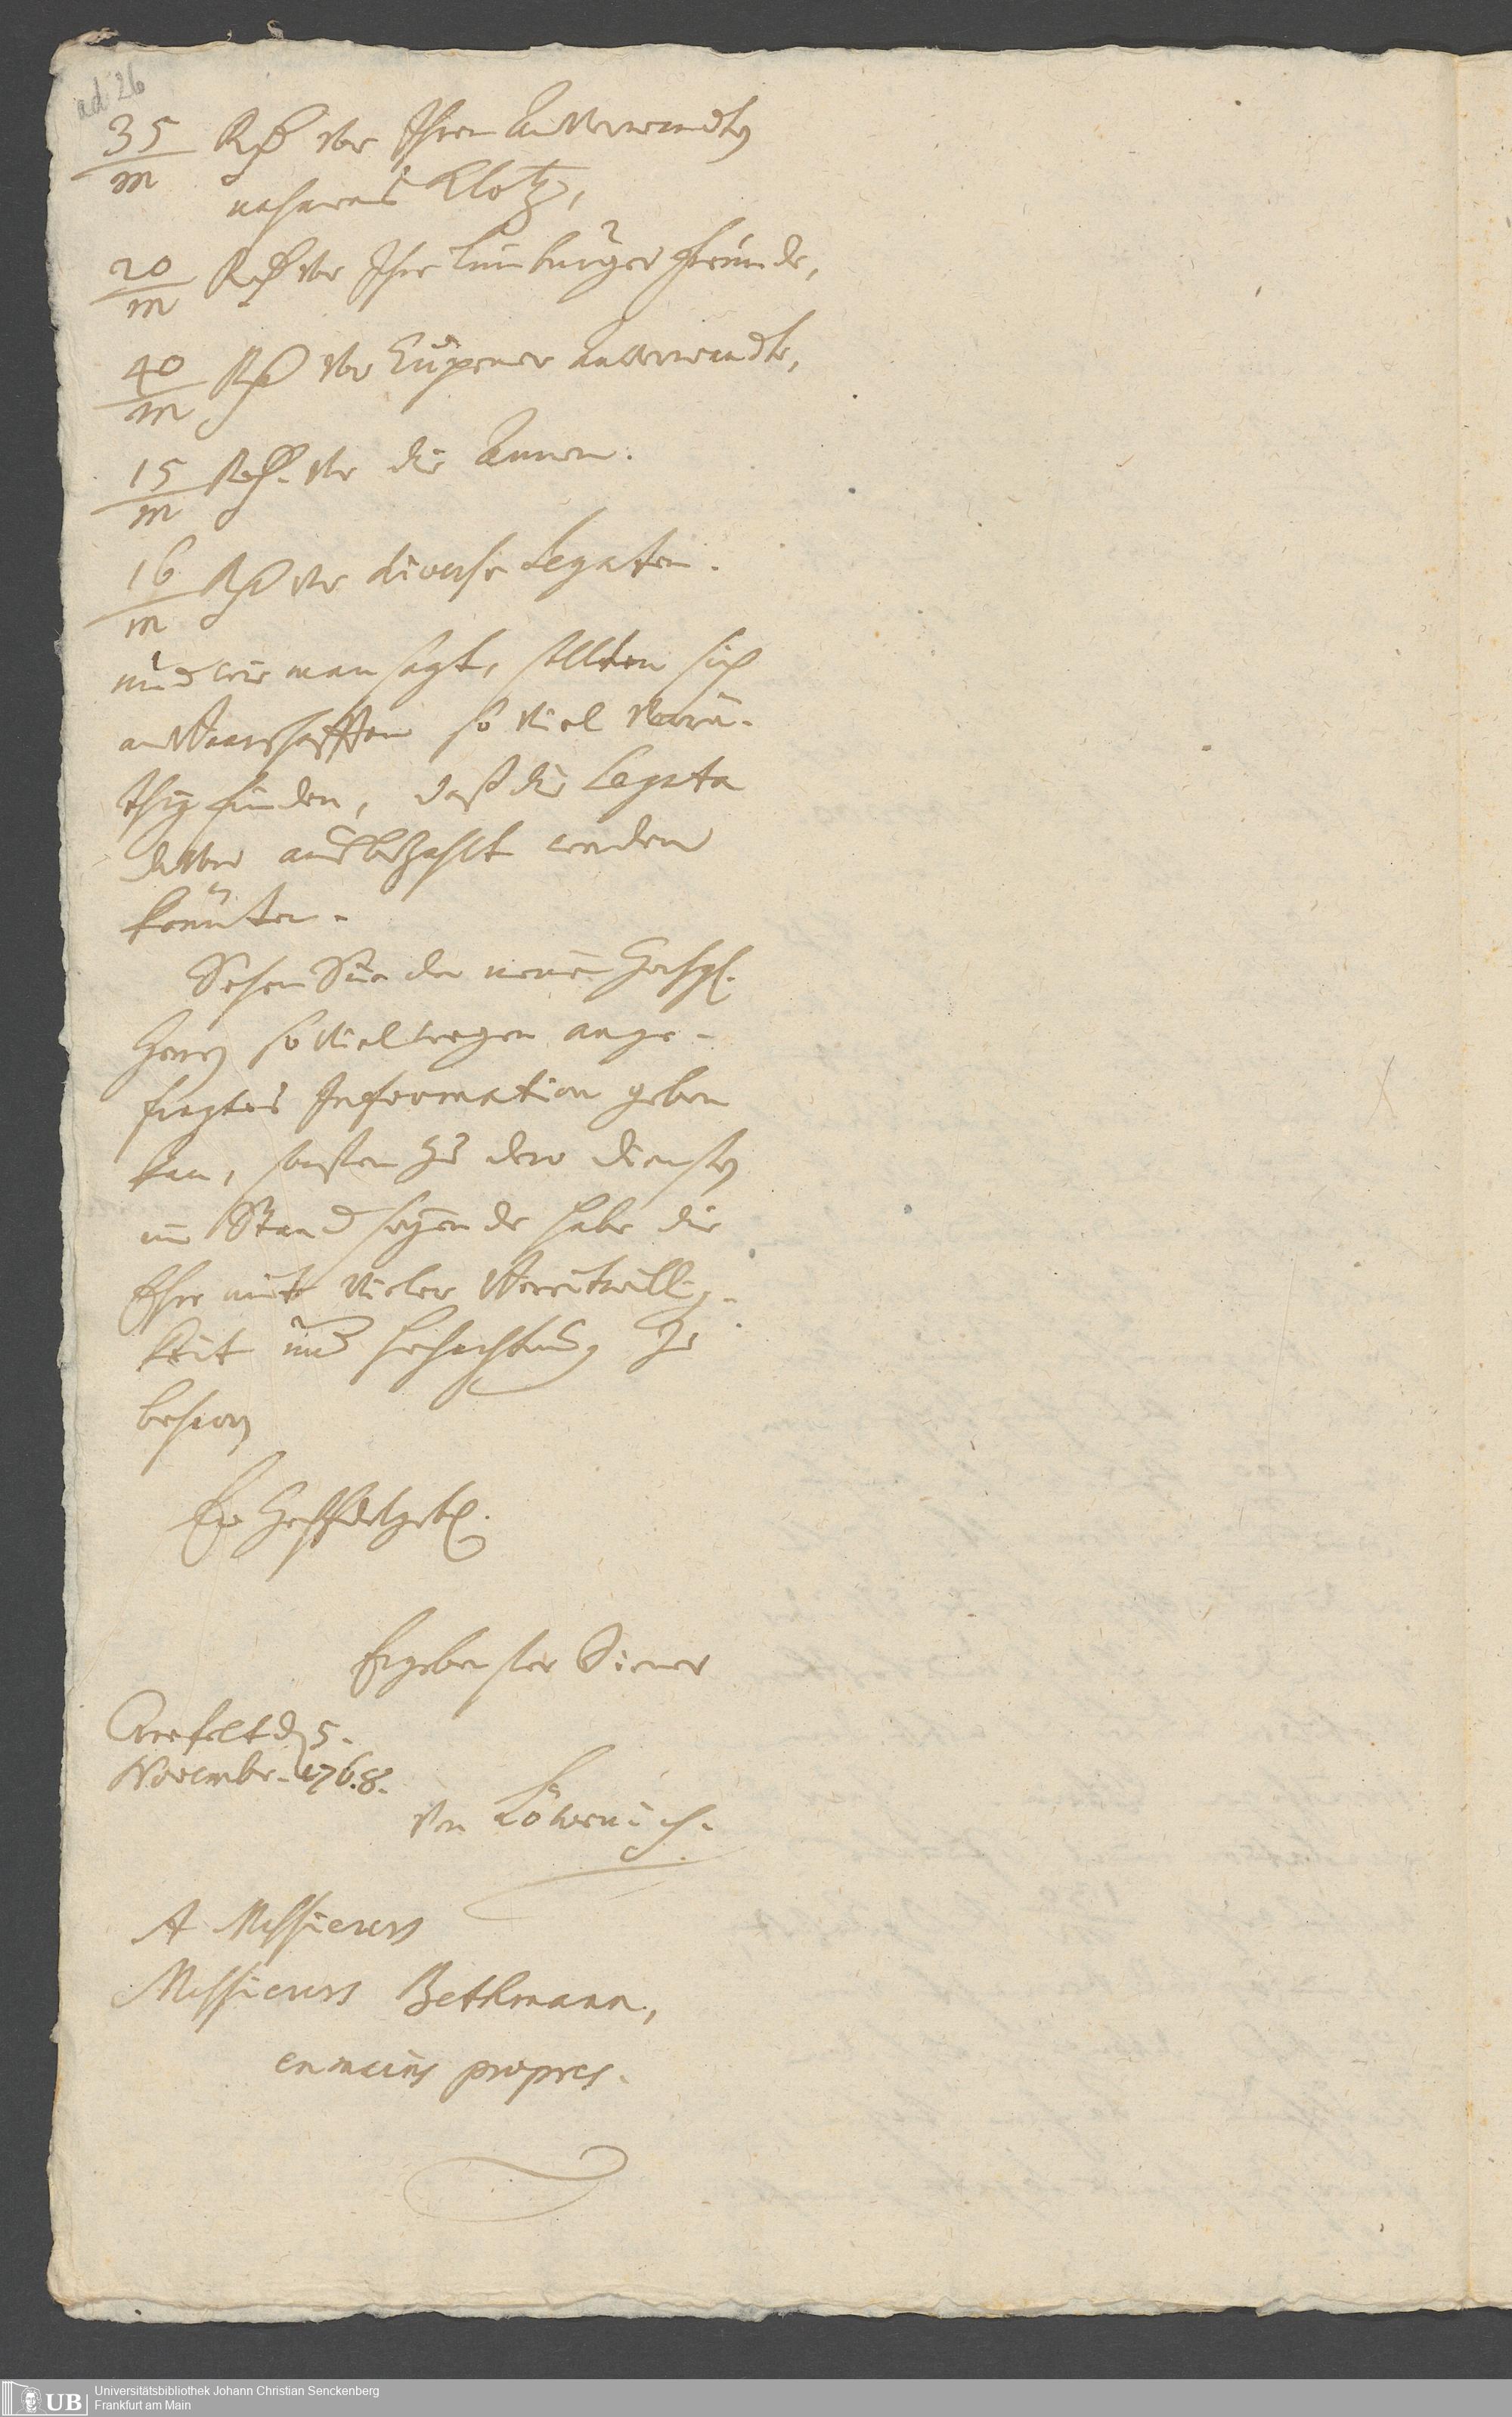 ad 26
35/m Rß vor Ihren Anverwandten
nahmens Klotz,
20/m Rß vor Ihre Limburger Freunde,
40/m Rß vor Eupener Anverwandte,
15/m Rß. vor die Armen.
16/m Rß vor diverse Legaten.
und wie man sagt, sollten sich
an Waarschafften so viel vorrä-
thig finden, daß die Legata
davon ausbezahlt werden
könten.
Sehen Sie da meine Hochgl.
Herren so viel wegen ange-
fragtes Information geben
kan, sonsten zu dero Diensten
im Stand seyende habe die
Ehre mit vieler Bereitwillig-
keit und Hochachtung zu
beharren
Ew HochEdelgeb.
Ergebenster Diener
Crefelt d 5.
Novembr. 1768.
von Löwenich.
A Messieurs
Messieurs Bethmann,
en mains propres.
UB
Universitätsbibliothek Johann Christian Senckenberg
Frankfurt am Main